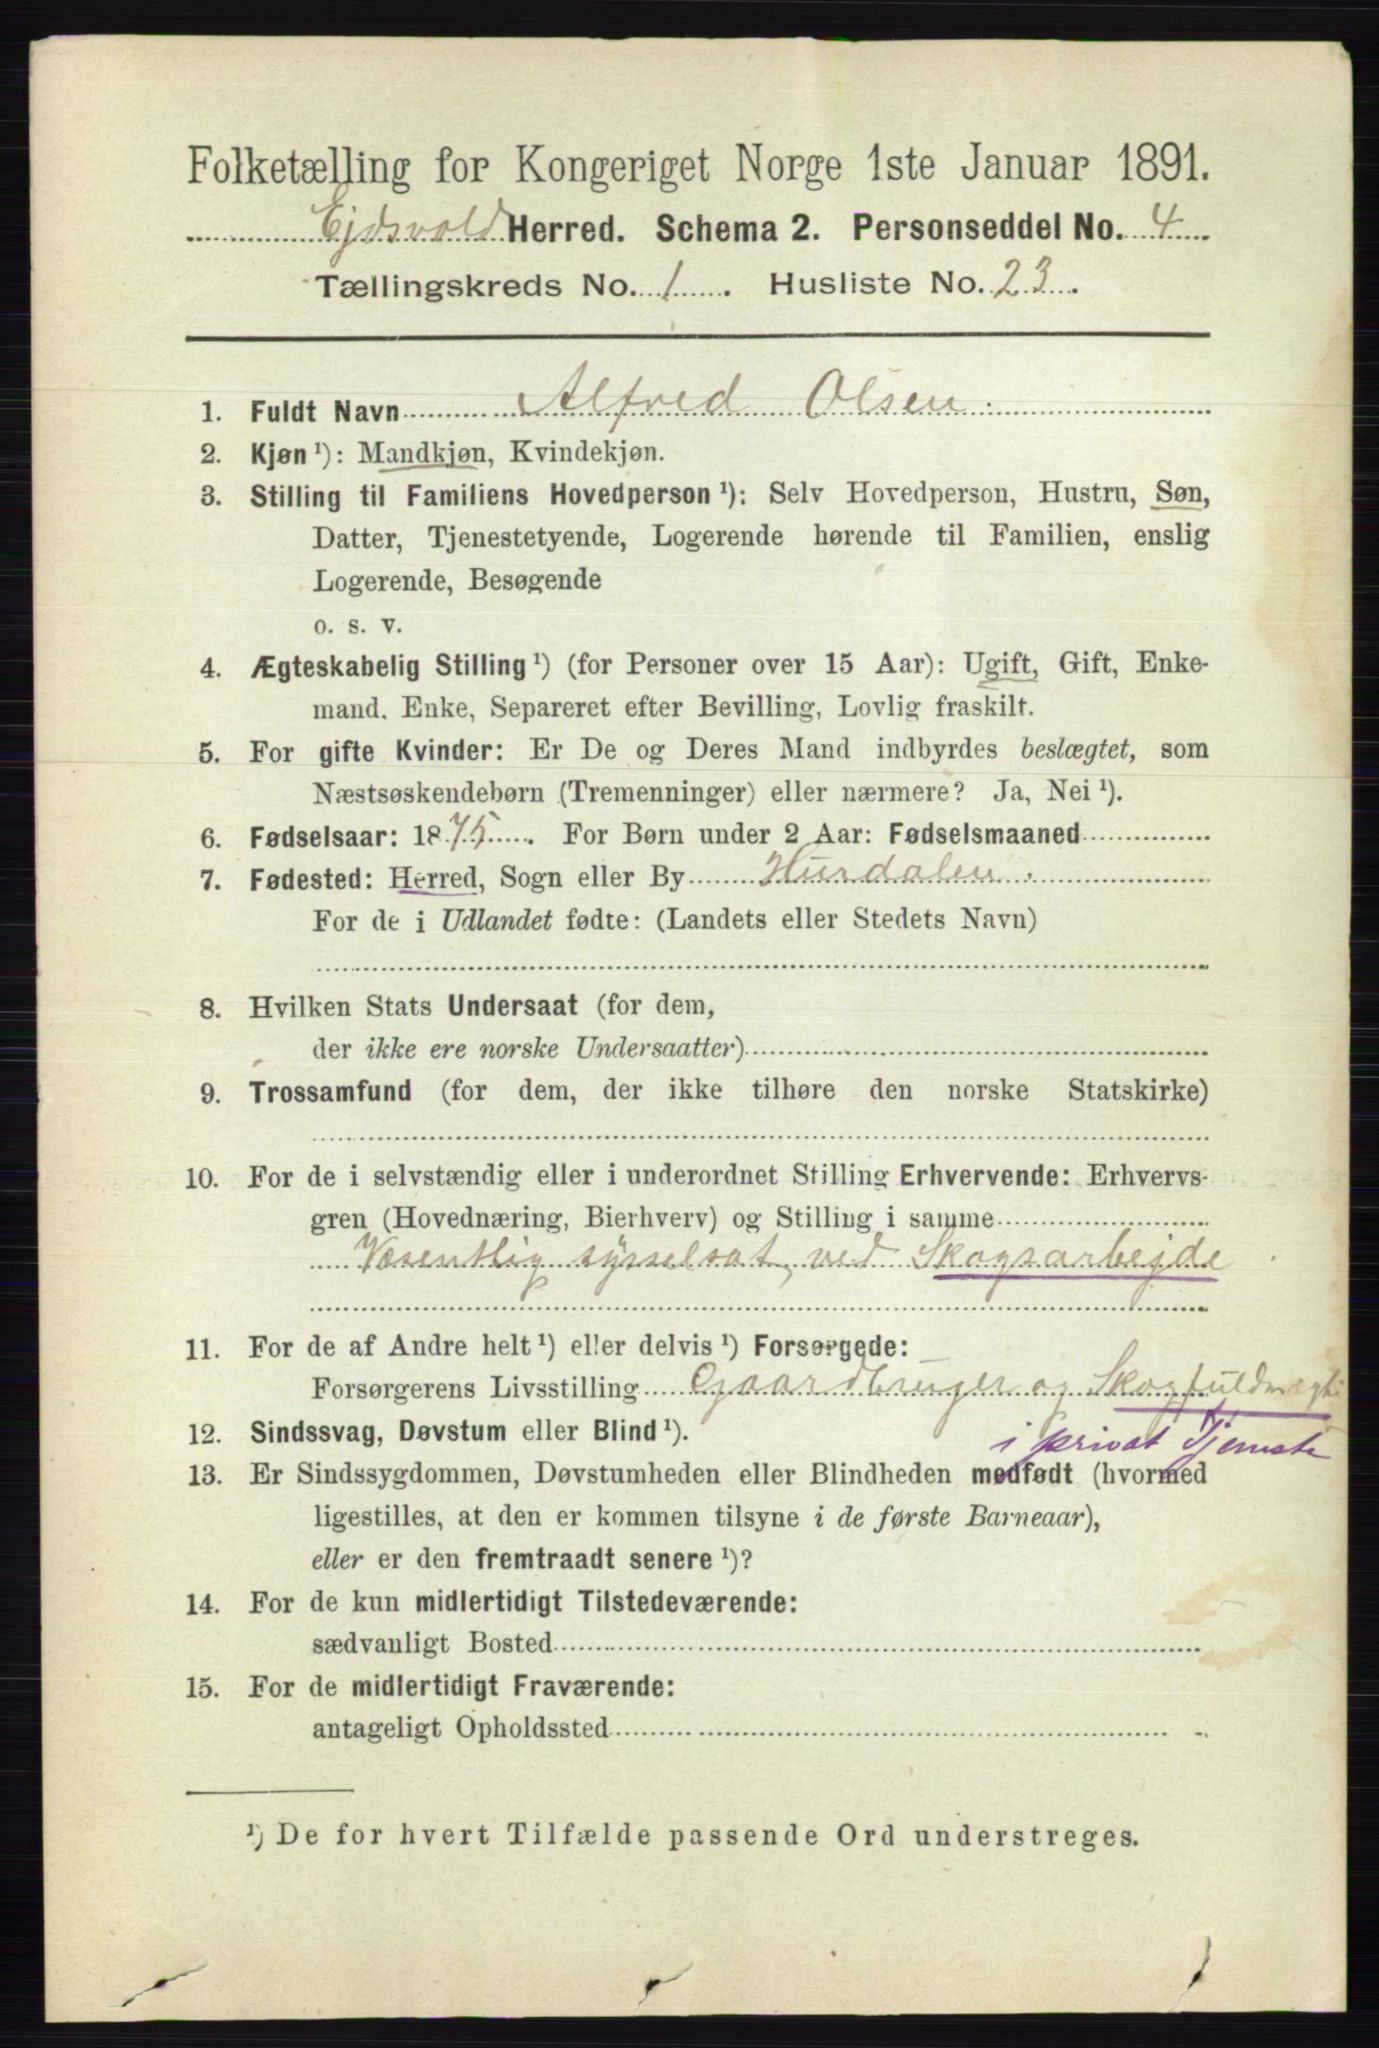 Folketælling for Kongeriget Norge 1ste Januar 1891.
Ejdsvold Herred. Schema 2. Personseddel No. 4
Tællingskreds No. 1. Husliste No. 23.
1. Fuldt Navn Alfred Olsen.
2. Kjøn ¹): Mandkjøn, Kvindekjøn.
3. Stilling til Familiens Hovedperson ¹): Selv Hovedperson, Hustru, Søn,
Datter, Tjenestetyende, Logerende hørende til Familien, enslig
Logerende, Besøgende
o. s. v.
4. Ægteskabelig Stilling ¹) (for Personer over 15 Aar): Ugift, Gift, Enke-
mand, Enke, Separeret efter Bevilling, Lovlig fraskilt.
5. For gifte Kvinder: Er De og Deres Mand indbyrdes beslægtet, som
Næstsøskendebørn (Tremenninger) eller nærmere? Ja, Nei ¹).
6. Fødselsaar: 1875. For Børn under 2 Aar: Fødselsmaaned
7. Fødested: Herred, Sogn eller By Hurdalen.
For de i Udlandet fødte: (Landets eller Stedets Navn)
8. Hvilken Stats Undersaat (for dem,
der ikke ere norske Undersaatter)
9. Trossamfund (for dem, der ikke tilhøre den norske Statskirke)
10. For de i selvstændig eller i underordnet Stilling Erhvervende: Erhvervs-
gren (Hovednæring, Bierhverv) og Stilling i samme
Væsentlig sysselsat ved Skogsarbejde
11. For de af Andre helt ¹) eller delvis ¹) Forsørgede:
Forsørgerens Livsstilling Gaardbruger og Skogfuldmægti
i privat Tjeneste
12. Sindssvag, Døvstum eller Blind ¹).
13. Er Sindssygdommen, Døvstumheden eller Blindheden medfødt (hvormed
ligestilles, at den er kommen tilsyne i de første Barneaar),
eller er den fremtraadt senere ¹)?
14. For de kun midlertidigt Tilstedeværende:
sædvanligt Bosted
15. For de midlertidigt Fraværende:
antageligt Opholdssted
¹) De for hvert Tilfælde passende Ord understreges.